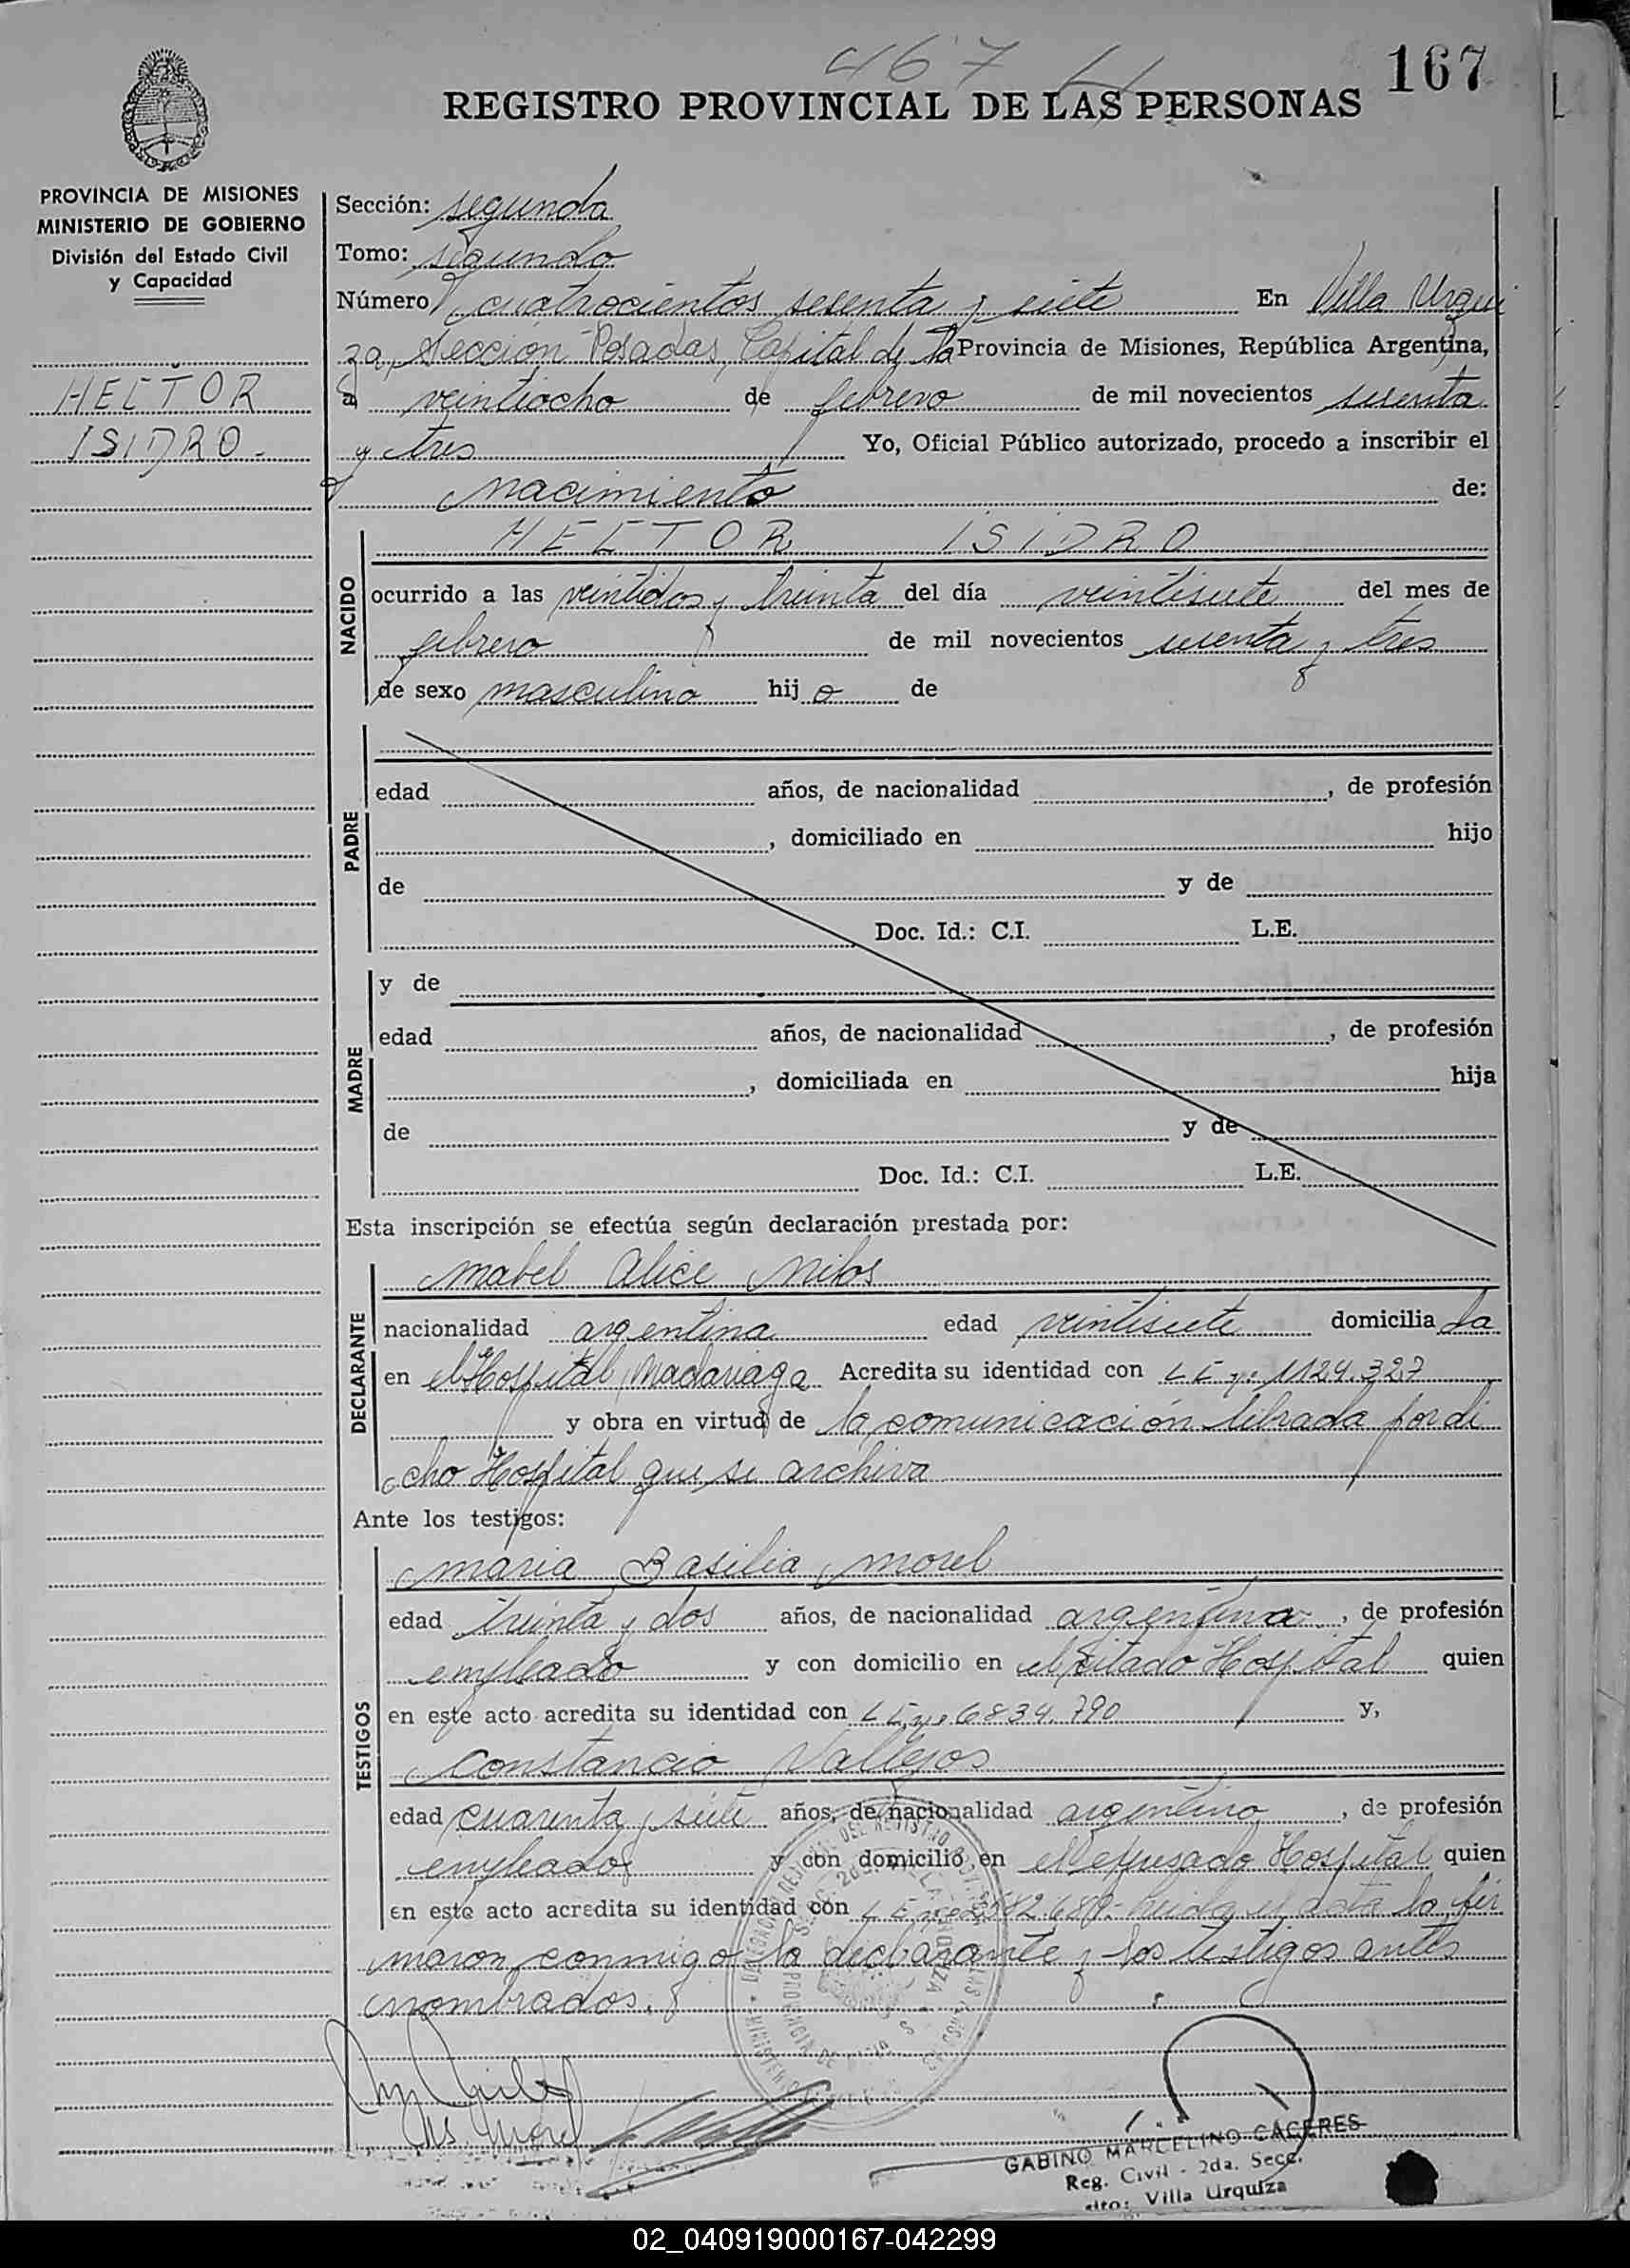 467
167
REGISTRO PROVINCIAL DE LAS PERSONAS
PROVINCIA DE MISIONES
MINISTERIO DE GOBIERNO
División del Estado Civil
y Capacidad
HECTOR
ISIDRO.-
Sección: segunda
Tomo: segundo
Número cuatrocientos sesenta y siete En Villa Urqui
za, Sección Posadas, Capital de la Provincia de Misiones, República Argentina,
a veintiocho de febrero de mil novecientos sesenta
y tres Yo, Oficial Público autorizado, procedo a inscribir el
nacimiento de:
NACIDO
HECTOR ISIDRO
ocurrido a las veintidos y treinta del día veintisiete del mes de
febrero de mil novecientos sesenta y tres
de sexo masculino hijo de
PADRE
edad años, de nacionalidad , de profesión
, domiciliado en hijo
de y de
Doc. Id.: C.I. L.E.
MADRE
y de
edad años, de nacionalidad , de profesión
, domiciliada en hija
de y de
Doc. Id.: C.I. L.E.
Esta inscripción se efectúa según declaración prestada por:
DECLARANTE
Mabel Alice Milos
nacionalidad argentina edad veintisiete domiciliada
en el Hospital Madariaga Acredita su identidad con L E nº 1124.327
y obra en virtud de la comunicación librada por di
cho Hospital que se archiva
Ante los testigos:
TESTIGOS
Maria Basilia Morel
edad treinta y dos años, de nacionalidad argentina, de profesión
empleada y con domicilio en el citado Hospital quien
en este acto acredita su identidad con L E nº 6834.790 y,
Constancio Vallejos
edad cuarenta y siete años, de nacionalidad argentino, de profesión
empleado y con domicilio en el expresado Hospital quien
en este acto acredita su identidad con L E nº leida el acta la fir
maron conmigo la declarante y los testigos antes
nombrados.
GABINO MARCELINO CACERES
Reg. Civil - 2da. Secc.
dto: Villa Urquiza
02_040919000167-042299